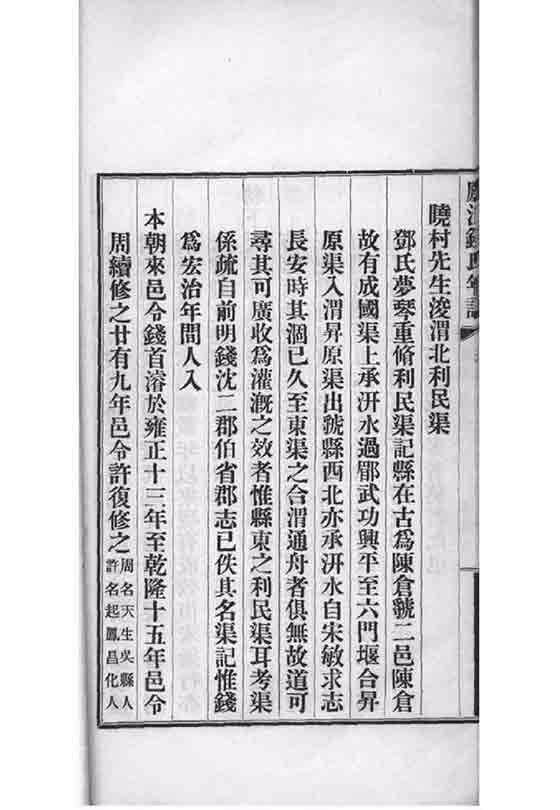 錢氏年譜
曉村先生浚渭北利民渠
鄧氏夢琴重脩利民渠記縣在古爲陳倉虢二邑陳倉
故有成國渠上承汧水過郿武功興平至六門堰合昇
原渠入渭昇原渠出虢縣西北亦承汧水自宋敏求志
長安時其涸已久至東渠之合渭通舟者俱無故道可
尋其可廣收爲灌漑之效者惟縣東之利民渠耳考渠
係疏自前明錢沈二郡伯省郡志已佚其名渠記惟錢
爲宏治年間人入
本朝來邑令錢首濬於雍正十三年至乾隆十五年邑令
周續修之廿有九年邑令許復修之周名天生吳縣人
許名起鳳昌化人